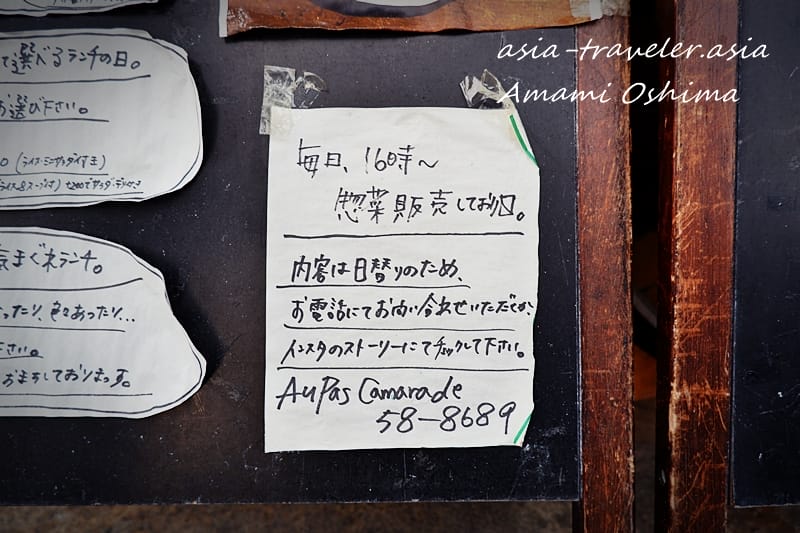 asia-traveler.asia
Amami Oshima
選べるランチの日。
お選び下さい。
(ライス・ミニサラダ付き)
まぐれランチ。
ったり、色々あったり...
下さい。
おまちしております。
毎日、16時〜
惣菜販売しており〼。
内容は日替りのため、
お電話にてお問い合わせいただくか、
インスタのストーリーにてチェックして下さい。
Au Pas Camarade
58-8689